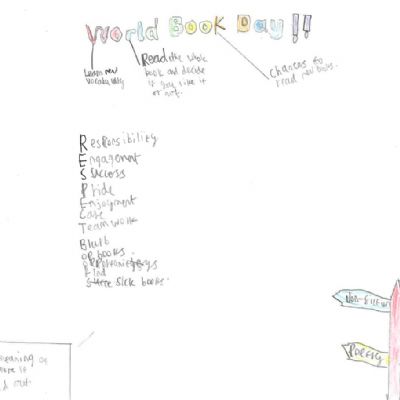 World Book Day!!
Learn new
vocabulary
Read the whole
book and decide
if you like it
or not.
Chances to
read new books.
Responsibility
Engagement
Success
Pride
Enjoyment
Care
Teamwork
Blurb
of books.
Find
sick books.
Non-fiction
Poetry
meaning or
out